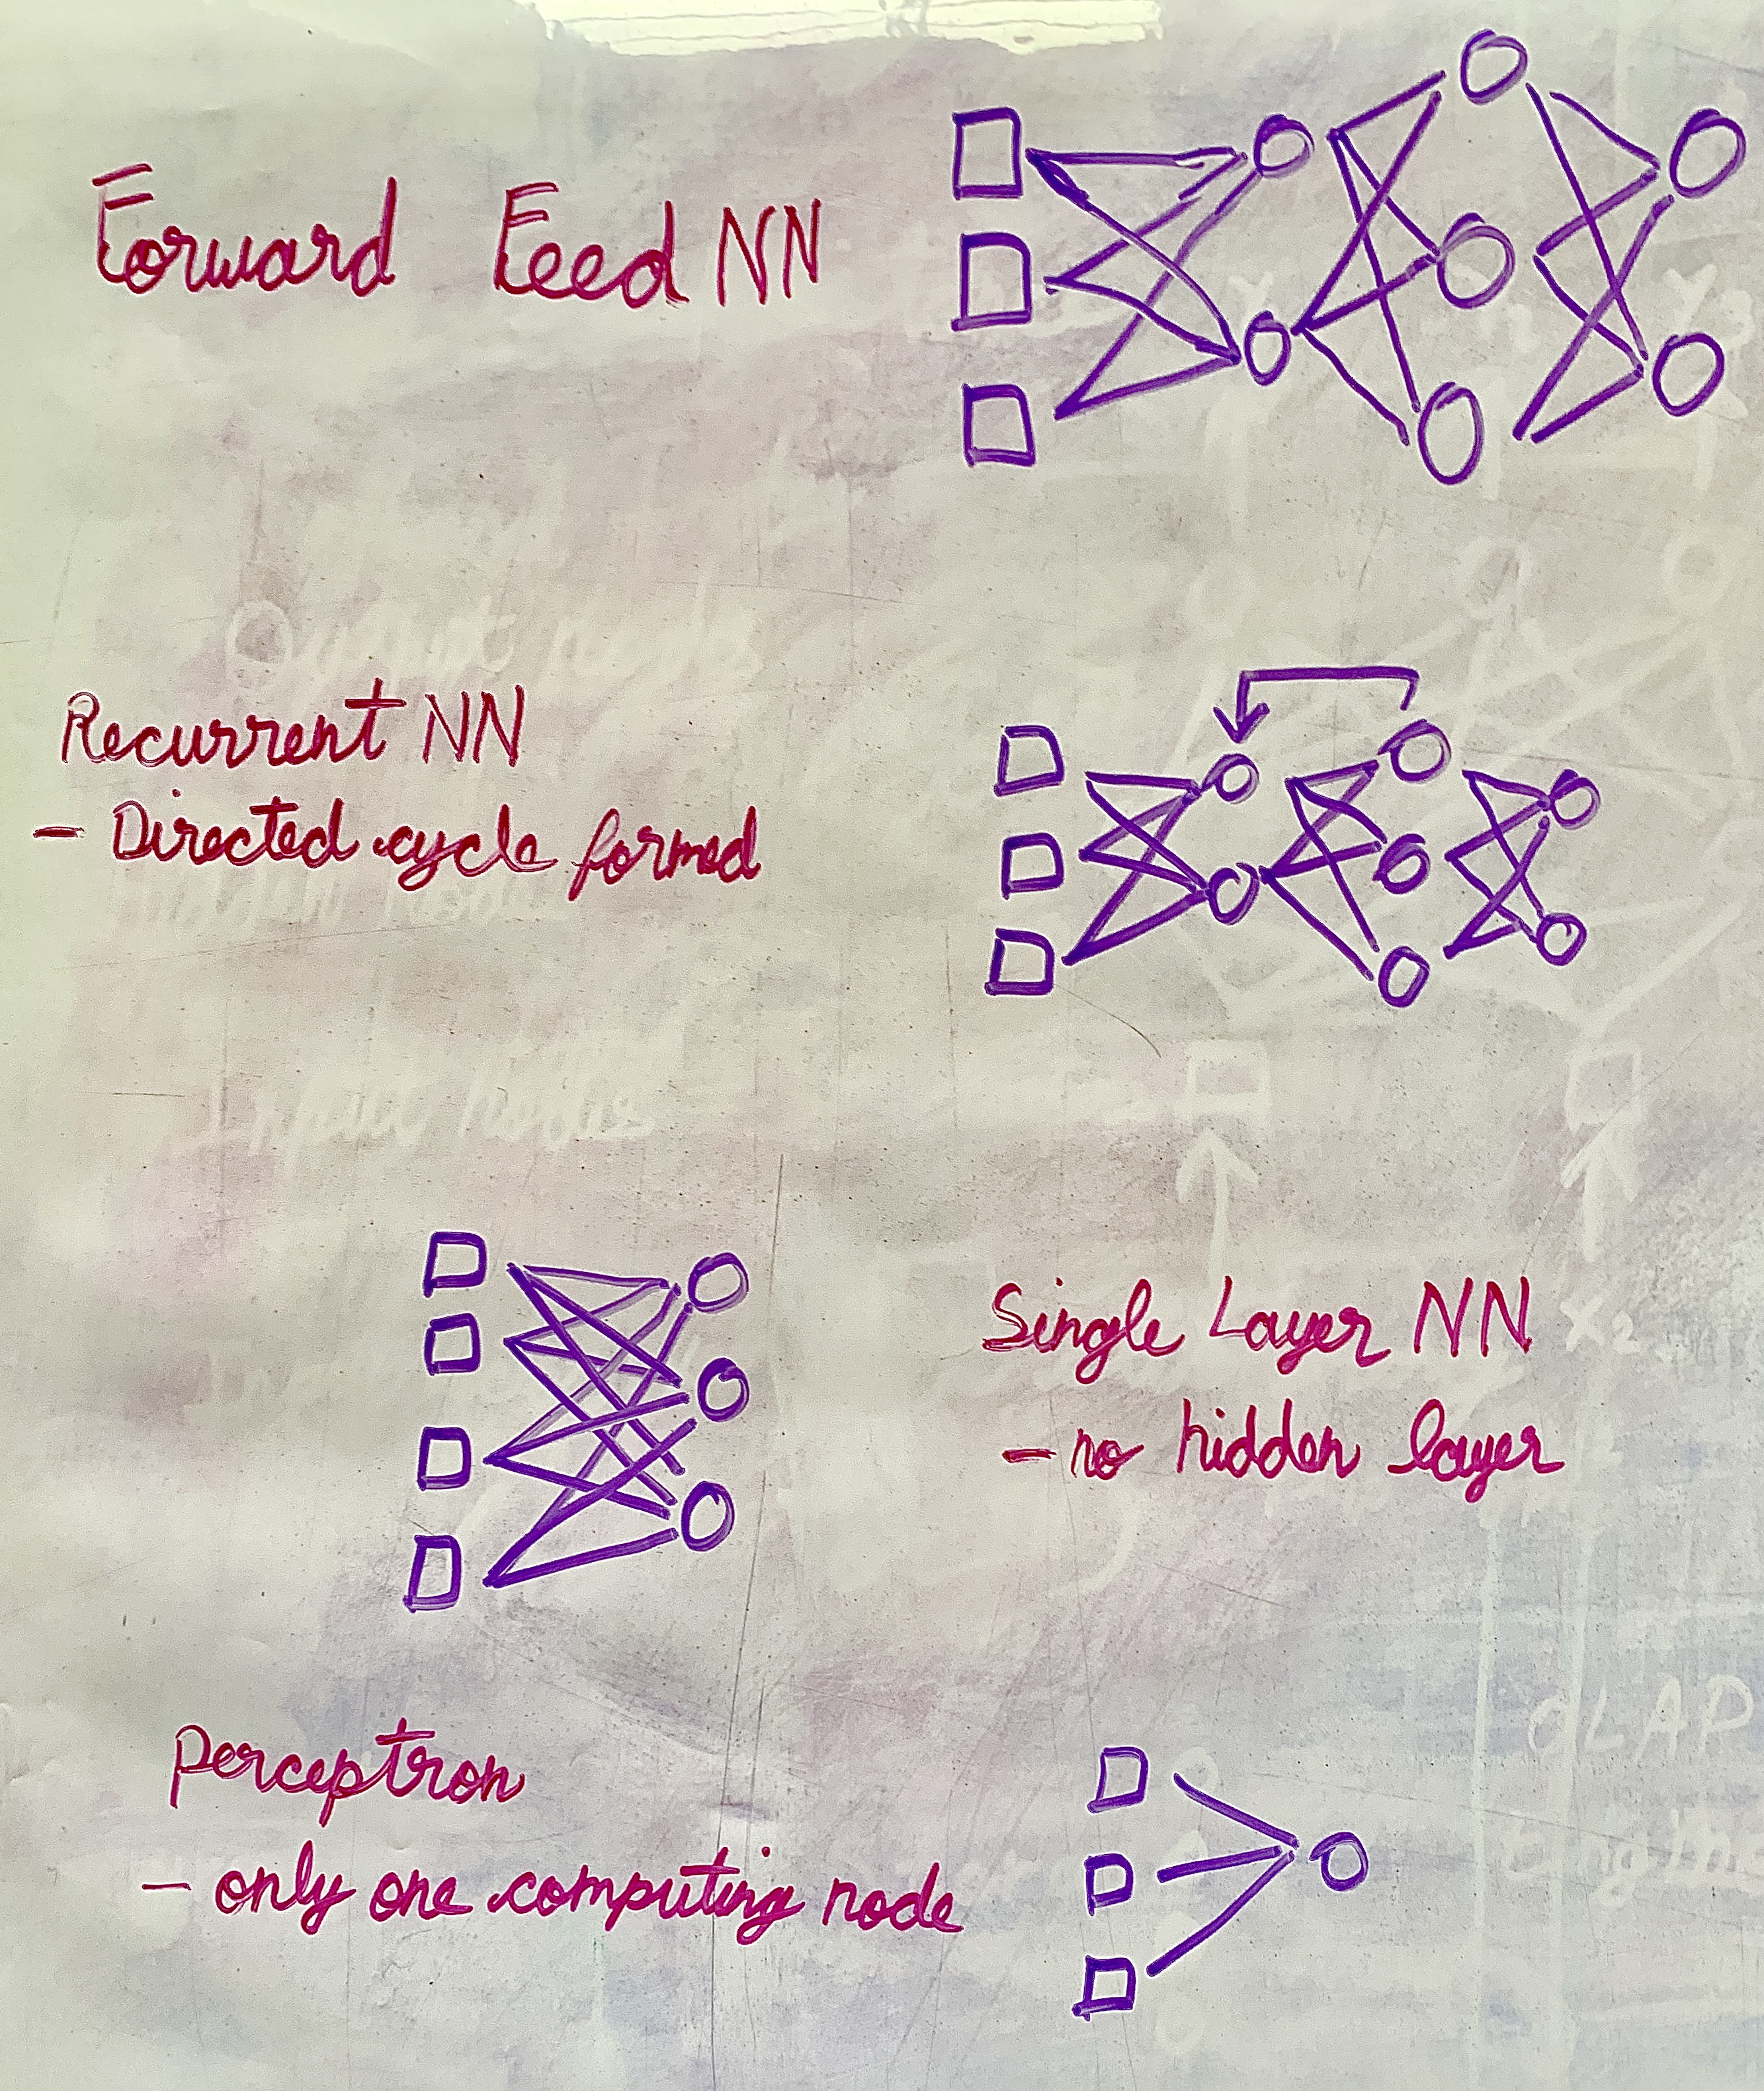 Forward Feed NN
Recurrent NN
- Directed cycle formed
Single Layer NN
- no hidden layer
Perceptron
- only one computing node
x2
OLAP